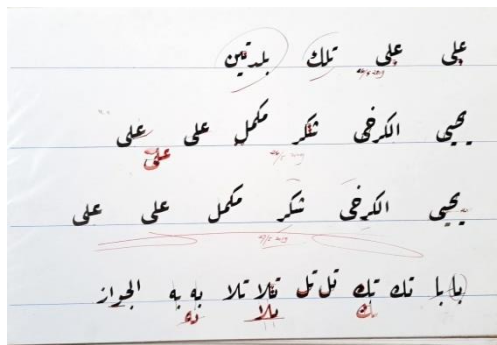 على على تلك بلدتين
يحيى الكرخي شكر مكمل على على
على
يحيى الكرخي شكر مكمل على على
با با تك تك تل تل تلا تلا به به الجواز
تك تلا به